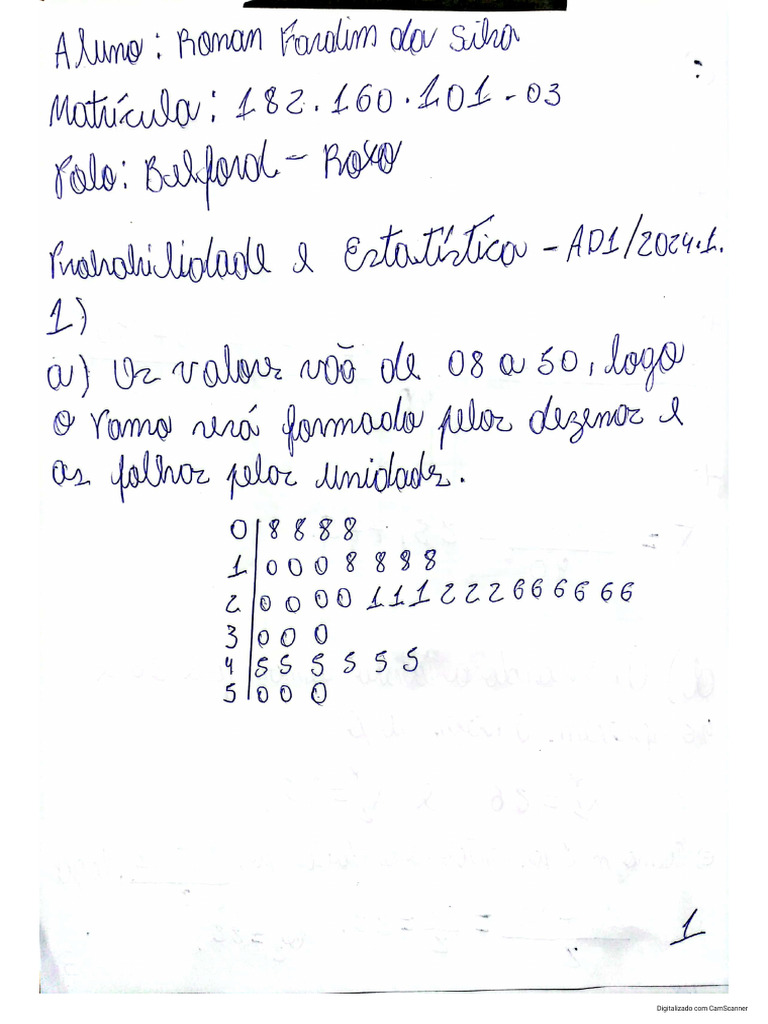 Aluno: Ronan Fardim da Silva
Matrícula: 182.160.101-03
Polo: Belford-Roxo
Probabilidade e Estatística - AD1/2024.1.
1)
a) Os valores vão de 08 a 50, logo
o ramo será formado pelas dezenas e
as folhas pelas unidades.
0|8 8 8 8
1|0 0 0 8 8 8 8
2|0 0 0 0 1 1 1 2 2 2 6 6 6 6 6 6
3|0 0 0
4|5 5 5 5 5 5
5|0 0 0
1
Digitalizado com CamScanner